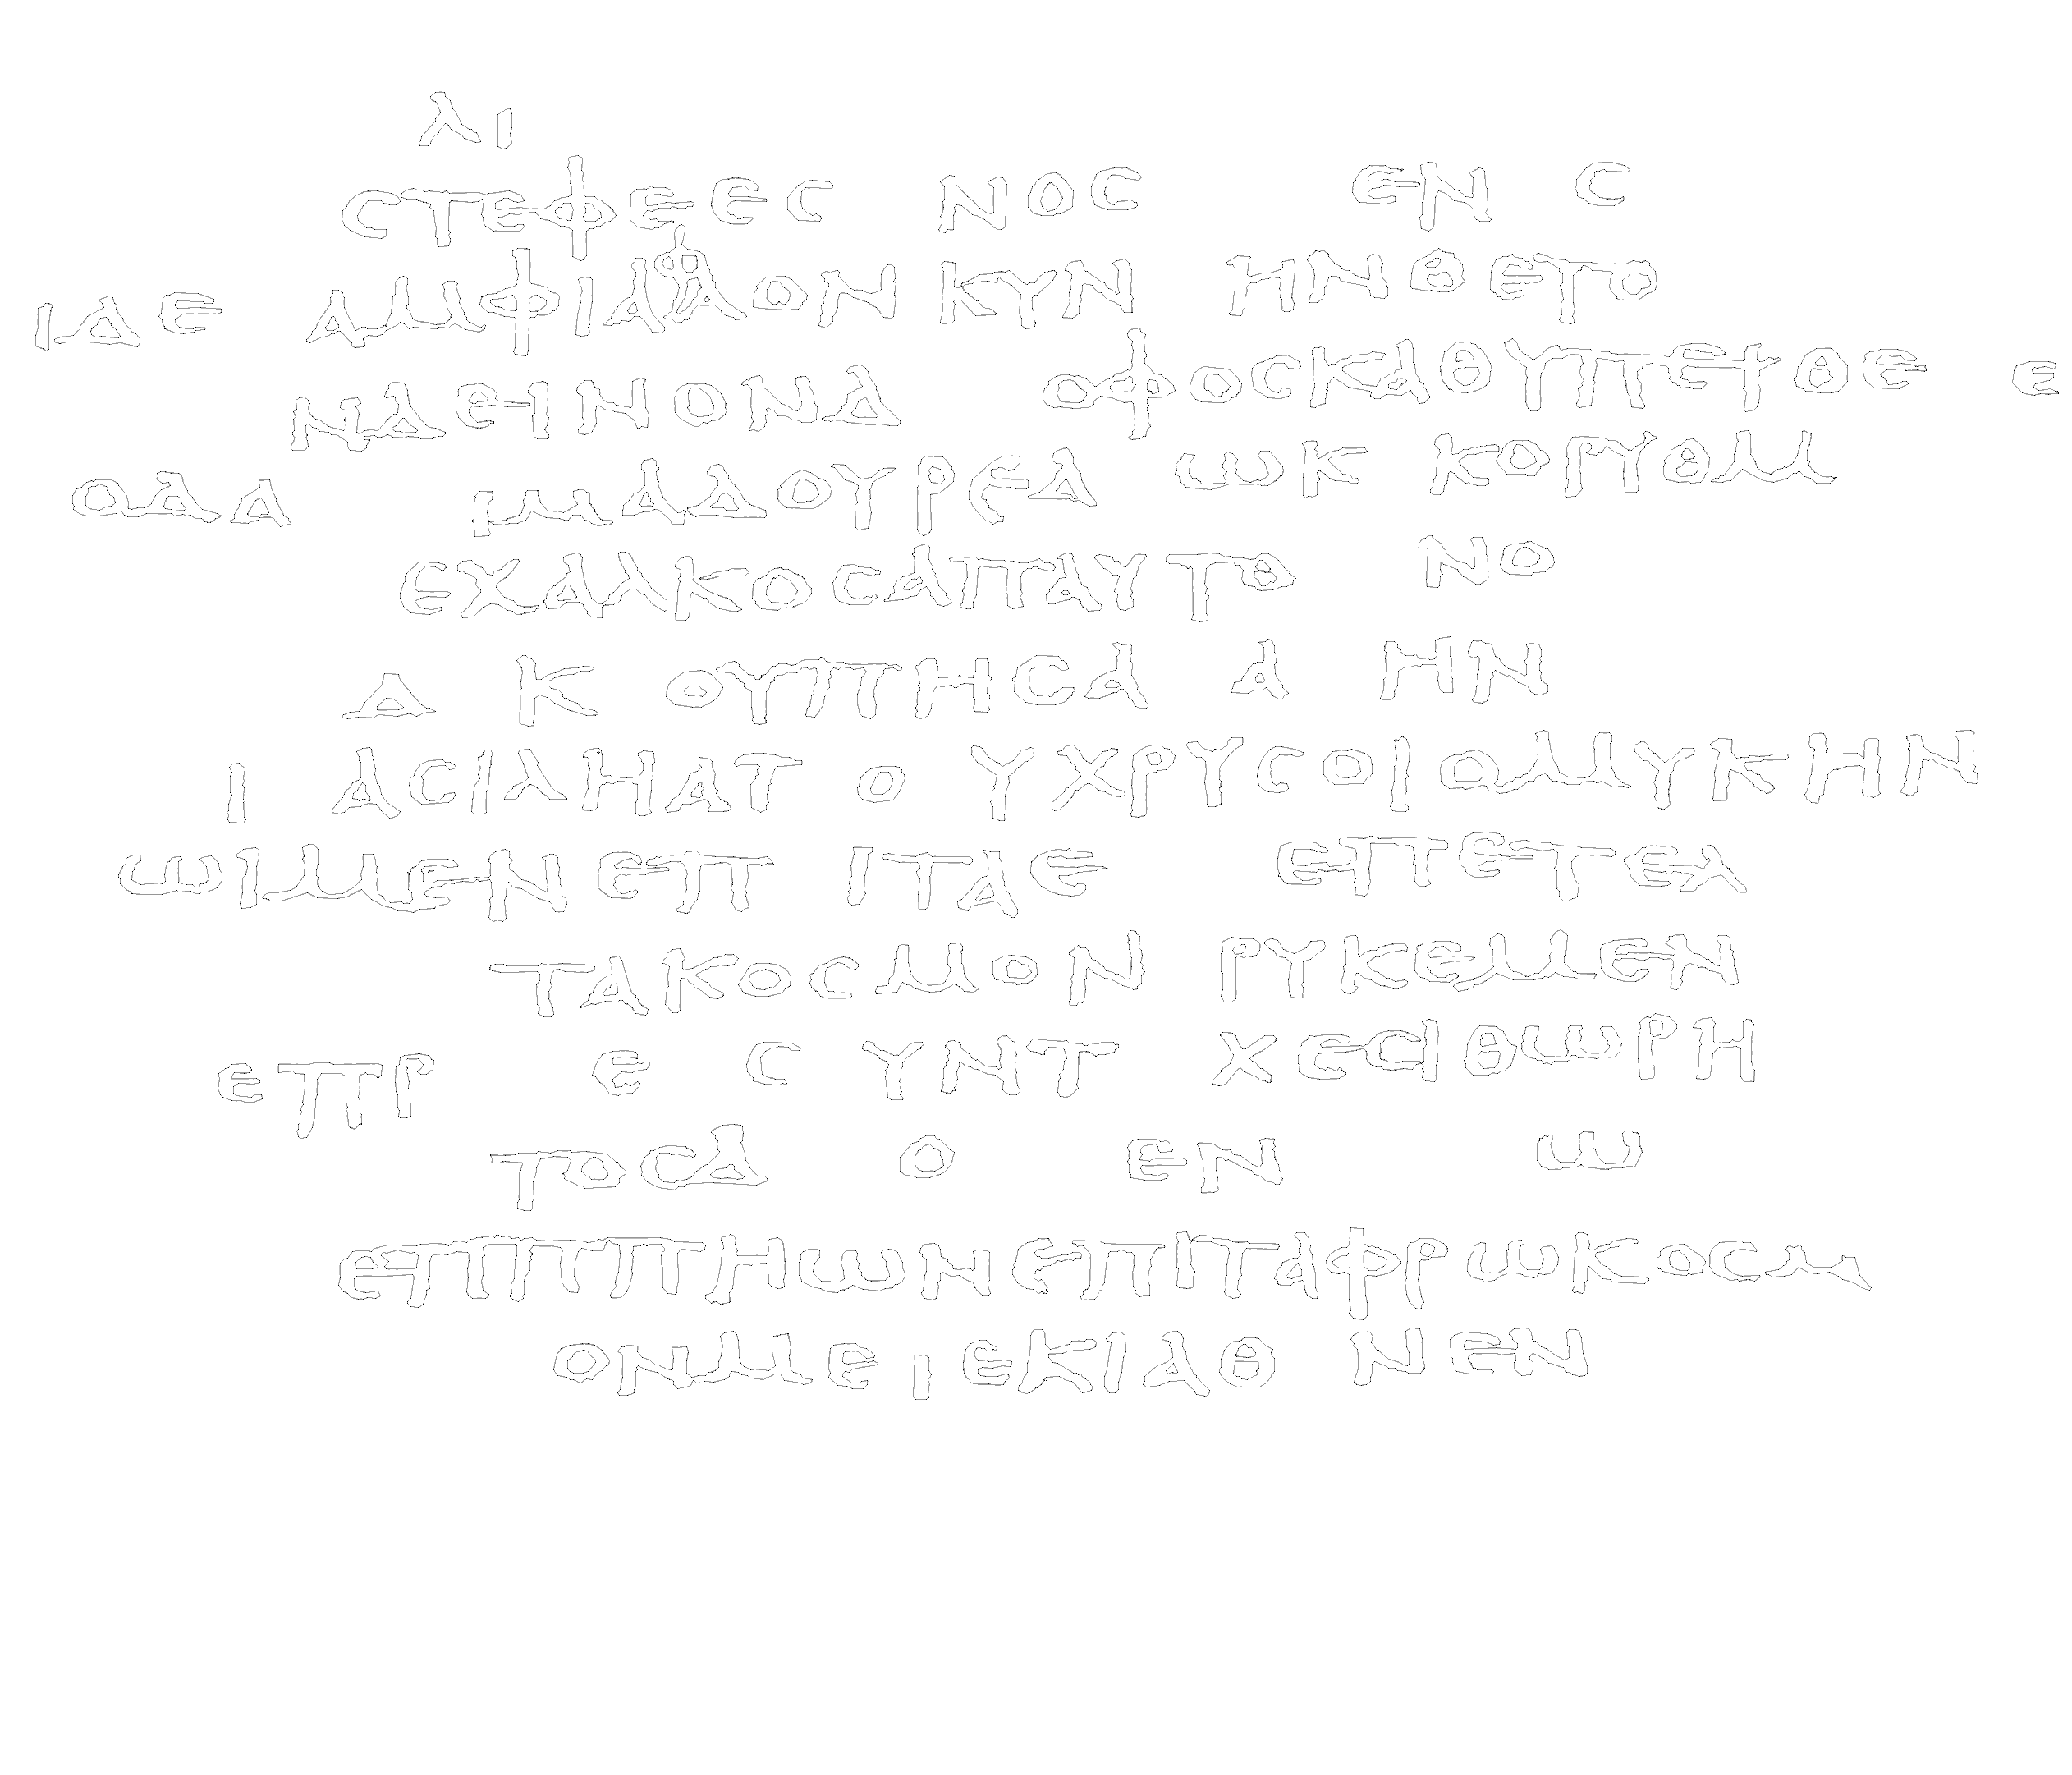 λι
ϲτεφεεϲ νοϲ εν ϲ
ιδε αμφιλφαον κυν ηνθετο
ναεινονδ οφοϲκαθυπετθε ε
οδα μαδουρεα ωκ κορυθμ
εχαλκοϲαπαυτο νο
δ κ ουπηϲα α ην
ι αϲιληατ ο υχρυϲοιομυκην
ωιμενεπ ιταε επετελ
τακοϲμον ρυκεμεν
επρ ε ϲ υντ χεϲιθωρη
τοϲδ ο εν ω
επππηωνεπιταφρωκοϲμ
ονμε ιεκιαθ νεν